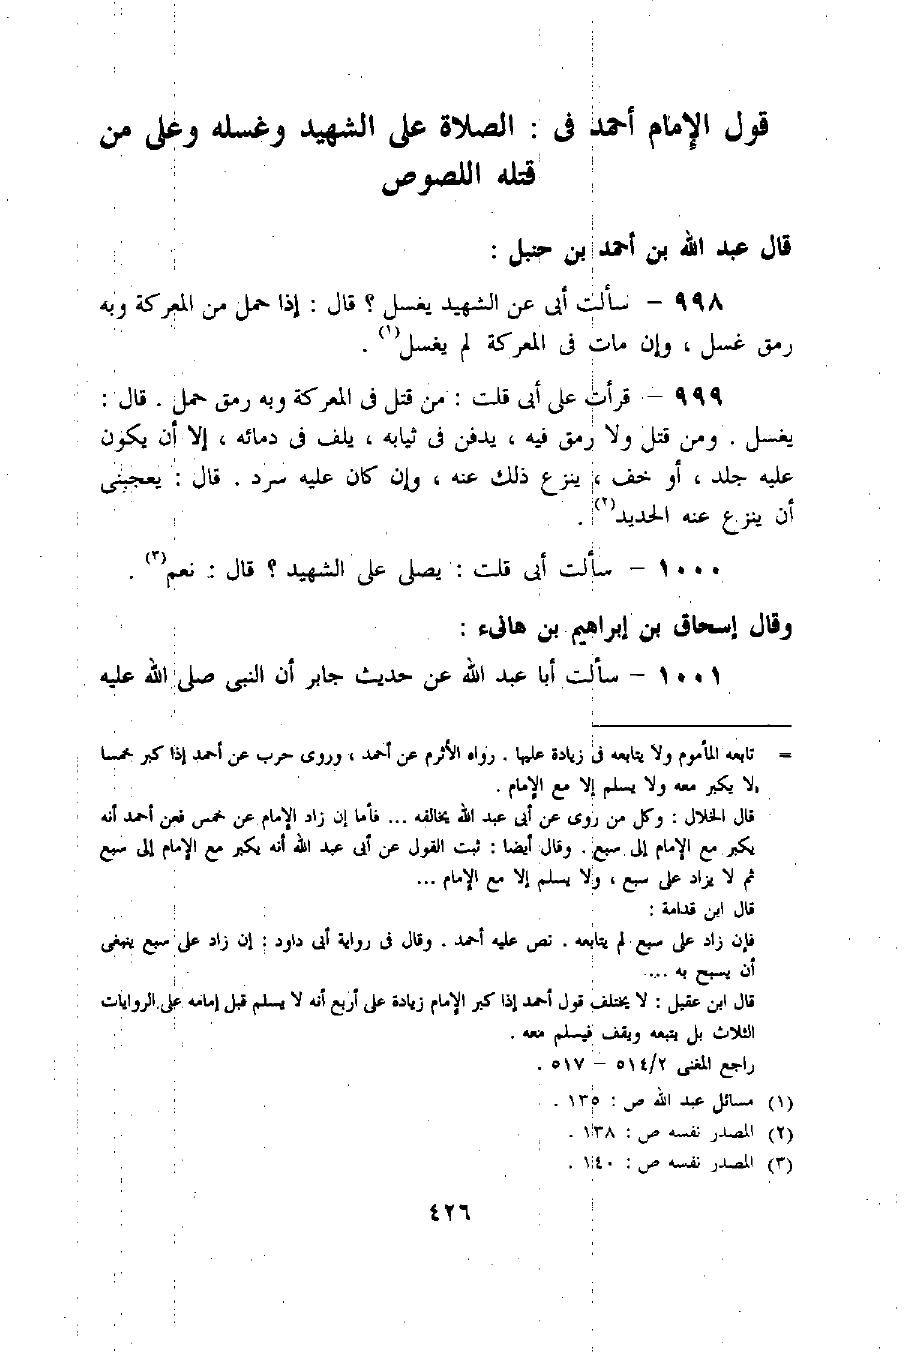 قول الإمام أحمد فى : الصلاة على الشهيد وغسله وعلى من
قتله اللصوص
قال عبد الله بن أحمد بن حنبل :
٩٩٨ – سألت أبى عن الشهيد يغسل ؟ قال : إذا حمل من المعركة وبه
رمق غسل ، وإن مات فى المعركة لم يغسل(١) .
٩٩٩ – قرأت على أبى قلت : من قتل فى المعركة وبه رمق حمل . قال :
يغسل . ومن قتل ولا رمق فيه ، يدفن فى ثيابه ، يلف فى دمائه ، إلا أن يكون
عليه جلد ، أو خف ، ينزع ذلك عنه ، وإن كان عليه سرد . قال : يعجبنى
أن ينزع عنه الحديد(٢) .
١٠٠٠ – سألت أبى قلت : يصلى على الشهيد ؟ قال : نعم(٣) .
وقال إسحاق بن إبراهيم بن هانىء :
١٠٠١ – سألت أبا عبد الله عن حديث جابر أن النبى صلى الله عليه
= تابعه المأموم ولا يتابعه فى زيادة عليها . رواه الأثرم عن أحمد ، وروى حرب عن أحمد إذا كبر خمسا
لا يكبر معه ولا يسلم إلا مع الإمام .
قال الخلال : وكل من روى عن أبى عبد الله يخالفه ... فأما إن زاد الإمام عن خمس فعن أحمد أنه
يكبر مع الإمام إلى سبع . وقال أيضا : ثبت القول عن أبى عبد الله أنه يكبر مع الإمام إلى سبع
ثم لا يزاد على سبع ، ولا يسلم إلا مع الإمام ...
قال ابن قدامة :
فإن زاد على سبع لم يتابعه . نص عليه أحمد . وقال فى رواية أبى داود : إن زاد على سبع ينبغى
أن يسبح به ...
قال ابن عقيل : لا يختلف قول أحمد إذا كبر الإمام زيادة على أربع أنه لا يسلم قبل إمامه على الروايات
الثلاث بل يتبعه ويقف فيسلم معه .
راجع المغنى ٥١٤/٢ – ٥١٧ .
(١) مسائل عبد الله ص : ١٣٥ .
(٢) المصدر نفسه ص : ١٣٨ .
(٣) المصدر نفسه ص : ١٤٠ .
٤٢٦